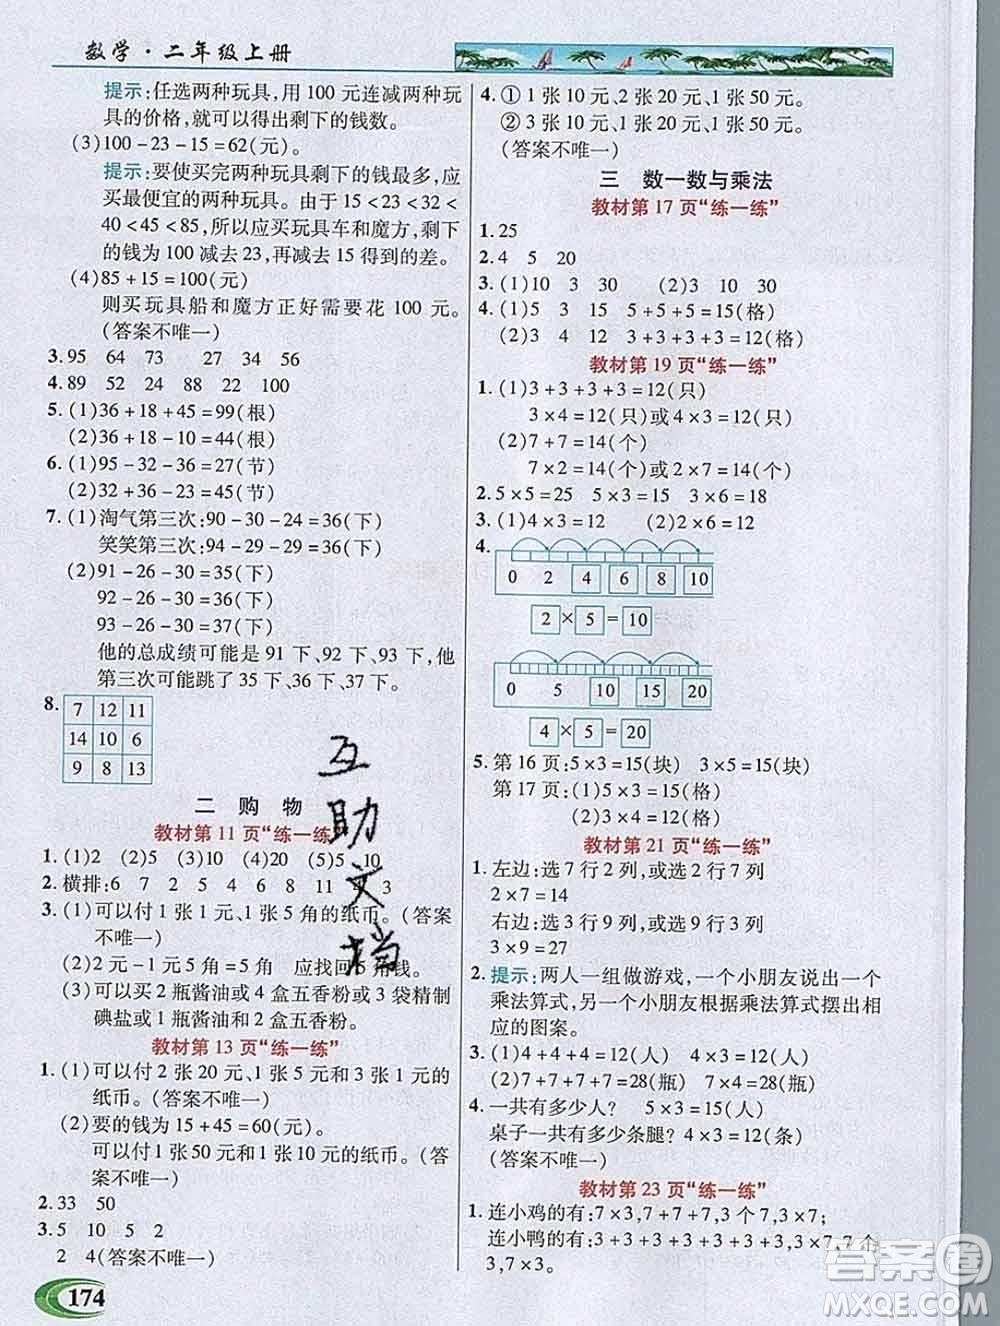 数学·二年级上册
提示:任选两种玩具,用 100 元连减两种玩
具的价格,就可以得出剩下的钱数。
(3)100-23-15=62(元)。
提示:要使买完两种玩具剩下的钱最多,应
买最便宜的两种玩具。由于 15<23<32<
40<45<85,所以应买玩具车和魔方,剩下
的钱为 100 减去 23,再减去 15 得到的差。
(4)85+15=100(元)
则买玩具船和魔方正好需要花 100 元。
(答案不唯一)
3.95 64 73 27 34 56
4.89 52 24 88 22 100
5.(1)36+18+45=99(根)
(2)36+18-10=44(根)
6.(1)95-32-36=27(节)
(2)32+36-27=41(节)
7.(1)淘气第三次:90-30-24=36(下)
笑笑第三次:94-29-29=36(下)
(2)91-26-30=35(下)
92-26-30=36(下)
93-26-30=37(下)
他的总成绩可能是 91 下、92 下、93 下,他
第三次可能跳了 35 下、36 下、37 下。
8.
7 12 11
14 10 6
9 8 13
二 购 物
教材第 11 页“练一练”
1.(1)2 (2)5 (3)10 (4)20 (5)5 10
2.横排:6 7 2 7 8 11 4 3
3.(1)可以付 1 张 1 元,1 张 5 角的纸币。(答案
不唯一)
(2)2 元-1 元 5 角=5 角 应找回 5 角钱。
(3)可以买 2 瓶酱油或 4 盒五香粉或 3 袋精制
碘盐或 1 瓶酱油和 2 盒五香粉。
教材第 13 页“练一练”
1.(1)可以付 2 张 20 元、1 张 5 元和 3 张 1 元的
纸币。(答案不唯一)
(2)要的钱为 15+45=60(元)。
可以付 1 张 50 元和 1 张 10 元的纸币。(答
案不唯一)
2.33 50
3.5 10 5 2
2 4(答案不唯一)
174
4.① 1 张 10 元、2 张 20 元、1 张 50 元。
② 3 张 10 元、1 张 20 元、1 张 50 元。
(答案不唯一)
三 数一数与乘法
教材第 17 页“练一练”
1.25
2.4 5 20
3.(1)10 3 30 (2)3 10 30
4.(1)5 3 15 5+5+5=15(格)
(2)3 4 12 3+3+3+3=12(格)
教材第 19 页“练一练”
1.(1)3+3+3+3=12(只)
3×4=12(只)或 4×3=12(只)
(2)7+7=14(个)
7×2=14(个)或 2×7=14(个)
2.5×5=25 5×5=25 3×6=18
3.(1)4×3=12 (2)2×6=12
4.
0 2 4 6 8 10
2×5=10
0 5 10 15 20
4×5=20
5.第 16 页:5×3=15(块) 3×5=15(块)
第 17 页:(1)5×3=15(格)
(2)3×4=12(格)
教材第 21 页“练一练”
1.左边:选 7 行 2 列,或选 2 行 7 列
2×7=14
右边:选 3 行 9 列,或选 9 行 3 列
3×9=27
2.提示:两人一组做游戏,一个小朋友说出一个
乘法算式,另一个小朋友根据乘法算式摆出相
应的图案。
3.(1)4+4+4=12(人) 4×3=12(人)
(2)7+7+7+7=28(人) 4×7=28(人)
4.一共有多少人? 5×3=15(人)
桌子一共有多少条腿? 4×3=12(条)
(答案不唯一)
教材第 23 页“练一练”
1.连小鸡的有:7×3,7+7+7,3 个 7,3×7;
连小鸭的有:3+3+3+3+3+3+3,7 个
3,7×3。
互
助
文
档
答案圈
MXQE.COM